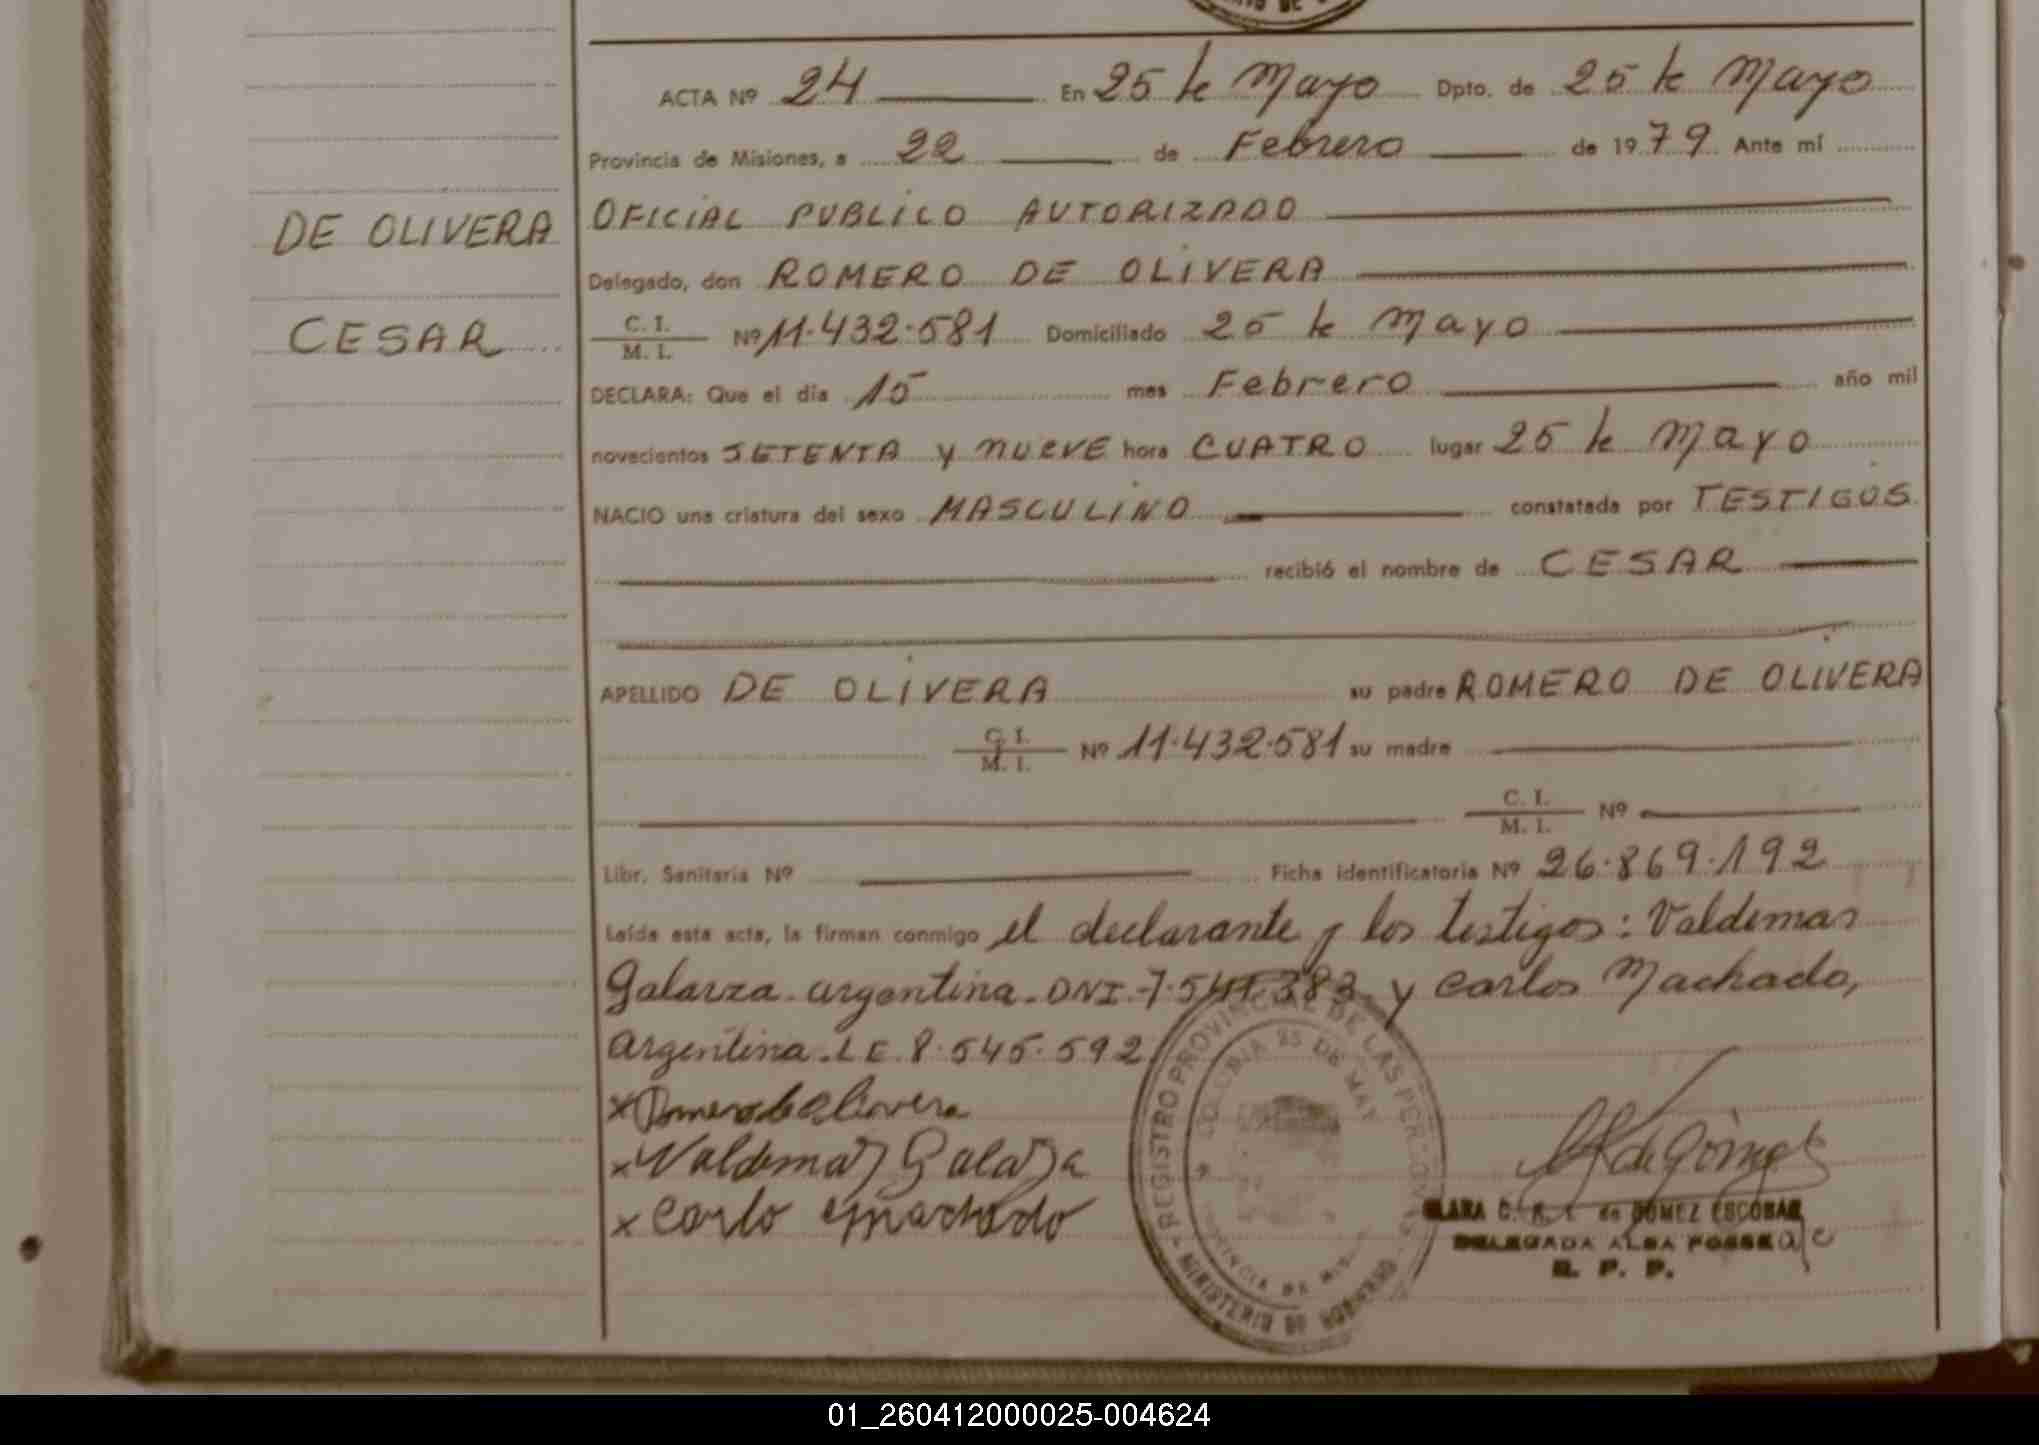 ACTA Nº 24 En 25 de Mayo Dpto. de 25 de Mayo
Provincia de Misiones, a 22 de Febrero de 1979 Ante mí
OFICIAL PUBLICO AUTORIZADO
DE OLIVERA
Delegado, don ROMERO DE OLIVERA
CESAR
C. I. / M. I. Nº 11.432.581 Domiciliado 25 de Mayo
DECLARA: Que el día 15 mes Febrero año mil
novecientos SETENTA y NUEVE hora CUATRO lugar 25 de Mayo
NACIO una criatura del sexo MASCULINO constatada por TESTIGOS.
recibió el nombre de CESAR
APELLIDO DE OLIVERA su padre ROMERO DE OLIVERA
C. I. / M. I. Nº 11.432.581 su madre
C. I. / M. I. Nº
Libr. Sanitaria Nº Ficha identificatoria Nº 26.869.192
Leída esta acta, la firman conmigo el declarante y los testigos: Valdemar
Galarza argentina. DNI. 7.541.383 y Carlos Machado,
Argentina. L E. 8.545.592
x Romero de Olivera
x Valdemar Galarza
x Carlo Machado
REGISTRO PROVINCIAL DE LAS PERSONAS
COLONIA 25 DE MAYO
PROVINCIA DE MISIONES
MINISTERIO DE GOBIERNO
CLARA C. de GOMEZ ESCOBAR
DELEGADA ALBA POSSE a/c
R. P. P.
01_260412000025-004624